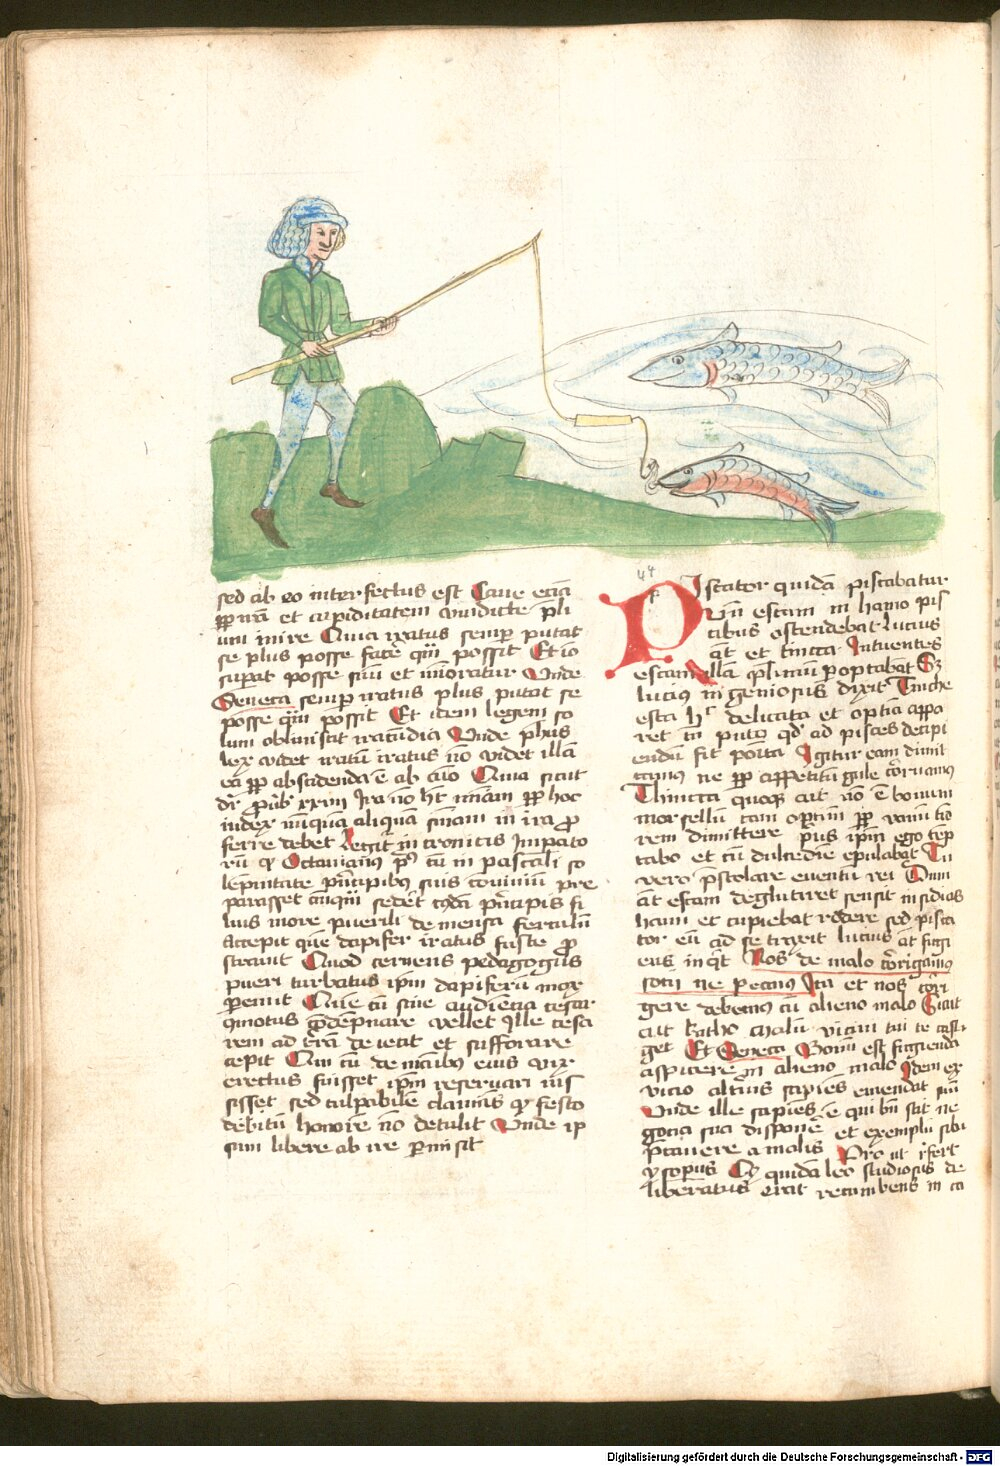 sed ab eo interfectus est Caue etiā
ꝓpriā et cupiditatem vindicte
um inire Quia iratus semꝑ putat
se plus posse facē qm̄ possit Et io
supat posse suū et īmoratur Unde
Seneca semꝑ iratus plus putat se
posse qm̄ possit Et idem legem so
lum obliuiscit iracūdia Unde phūs
lex videt iratū iratus nō videt illā
ab eīo Quia sicut
dr̄ pub xxvii Ira nō ht mīam ꝓp hoc
iudex nūquā aliquā sniam in ira ꝓ
ferre debet Legit̄ in cronicis Impato
rū ꝙ Octauianus cū in pascali so
lēpnitate prīcipibꝫ suis cōuiuiū pre
parasset sedēt prīcipis fi
lius more puerili de mensa ferculū
accepit quē dapifer iratus fuste ꝓ
strauit Quod cernens pedagogus
pueri turbatus ipm dapiferū mox
ꝑemit Quē cū sine audiēcia cesar
ꝯmotus ꝯdēpnare vellet Ille cesa
rem ad trā deiecit et suffocare
cepit Qui cū de manibus eius vix
erectus fuisset ipm reseruari ius
sisset sed culpabilē clamās ꝙ festo
debitū honorē nō detulit Unde ip
sum libere abire ꝑmisit
44
Piscator quidā piscabatur
Un̄ escam in hamo pis
cibus ostendebat Lucius
at et tincta Intuentes
escam illā plimū poptabāt Sꝫ
lucius ingeniosus dixit Tinche
esca hͨ delicata et optīa appa
ret tn̄ puto qd ad pisces decipi
endū sit posita Igitur eam dimit
tamus ne ꝓp appetitū gule corruamꝰ
Thincta quoqꝫ ait nō ē bonum
morsellū tam optīm ꝓp vanū tio
rem dimittere pus ipm ego tēp
tabo et cū dulcedīe epulabor Tu
vero pstolare euentū rei Dum
at escam deglutiret sensit insidias
hami et cupiebat redere sed pisca
tor eū ad se traxit lucius at fugi
ens inqt Nos de malo corrigamꝰ
socii ne peamꝰ Ita et nos cori
gere debemus cū alieno malo Sicut
ait Katho malū vicini tui te casti
get Et Seneca Bonū est fugienda
aspicere in alieno malo Idem ex
vicio alterius sapiēs emendat suū
Unde ille sapiēs ē qui bn̄ scit ne
gocia sua disponē et exemplū sibi
p̄cauere a malis Pro ut refert
ysopus Cȳ quidā leo studiosus de
liberatus erat recumbens in ca
Digitalisierung gefördert durch die Deutsche Forschungsgemeinschaft - DFG